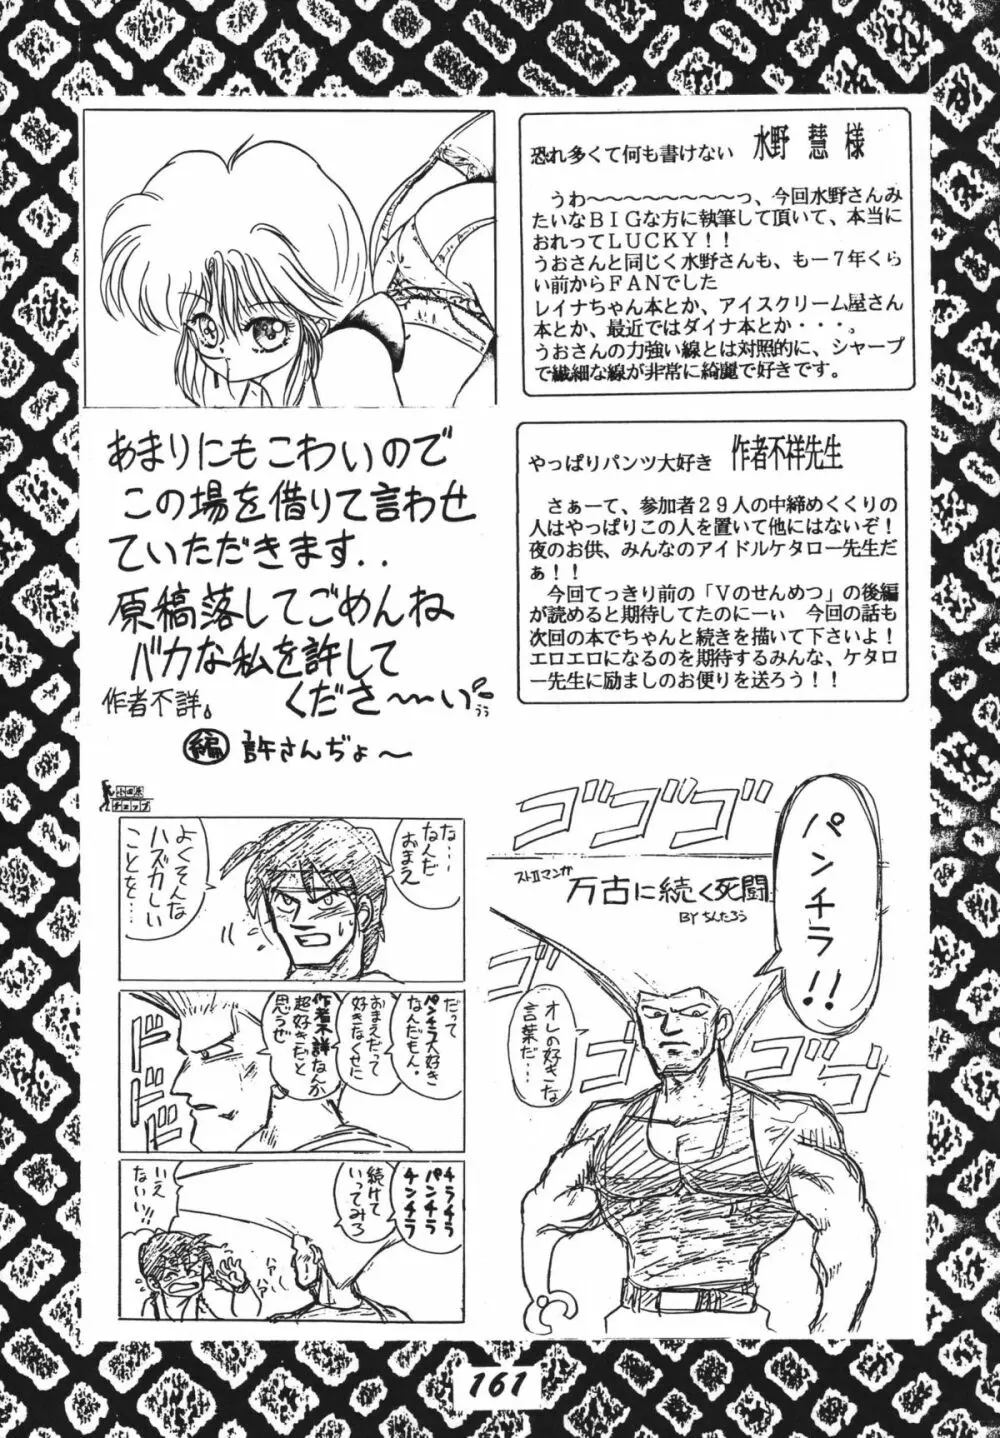 恐れ多くて何も書けない　水野　慧　様
うわ～～～～～～～～っ、今回水野さんみ
たいなＢＩＧな方に執筆して頂いて、本当に
おれってＬＵＣＫＹ！！
うおさんと同じく水野さんも、もー７年くら
い前からＦＡＮでした
レイナちゃん本とか、アイスクリーム屋さん
本とか、最近ではダイナ本とか・・・。
うおさんの力強い線とは対照的に、シャープ
で繊細な線が非常に綺麗で好きです。
あまりにもこわいので
この場を借りて言わせ
ていただきます．．
原稿落してごめんね
バカな私を許して
くださ～～い
作者不詳。
編 許さんぢょ～
やっぱりパンツ大好き　作者不祥先生
さぁーて、参加者２９人の中締めくくりの
人はやっぱりこの人を置いて他にはないぞ！
夜のお供、みんなのアイドルケタロー先生だ
ぁ！！
今回てっきり前の「Ｖのせんめつ」の後編
が読めると期待してたのにーぃ　今回の話も
次回の本でちゃんと続きを描いて下さいよ！
エロエロになるのを期待するみんな、ケタロ
ー先生に励ましのお便りを送ろう！！
ゴゴゴ
パンチラ!!
ストⅡマンガ
万古に続く死闘
BY ちんたろう
オレの好きな
言葉だ…
ゴゴ
ゴゴ
な…
なんだ
おまえ
よくそんな
ハズカしい
ことを…
だって
パンチラ大好き
なんだもん。
おまえだって
好きなくせに
作者不詳なんか
超好きだと
思うぜ
ドドド
チラチラ
パンチラ
チンチラ
続けて
いってみろ
いえ
ない!!
161